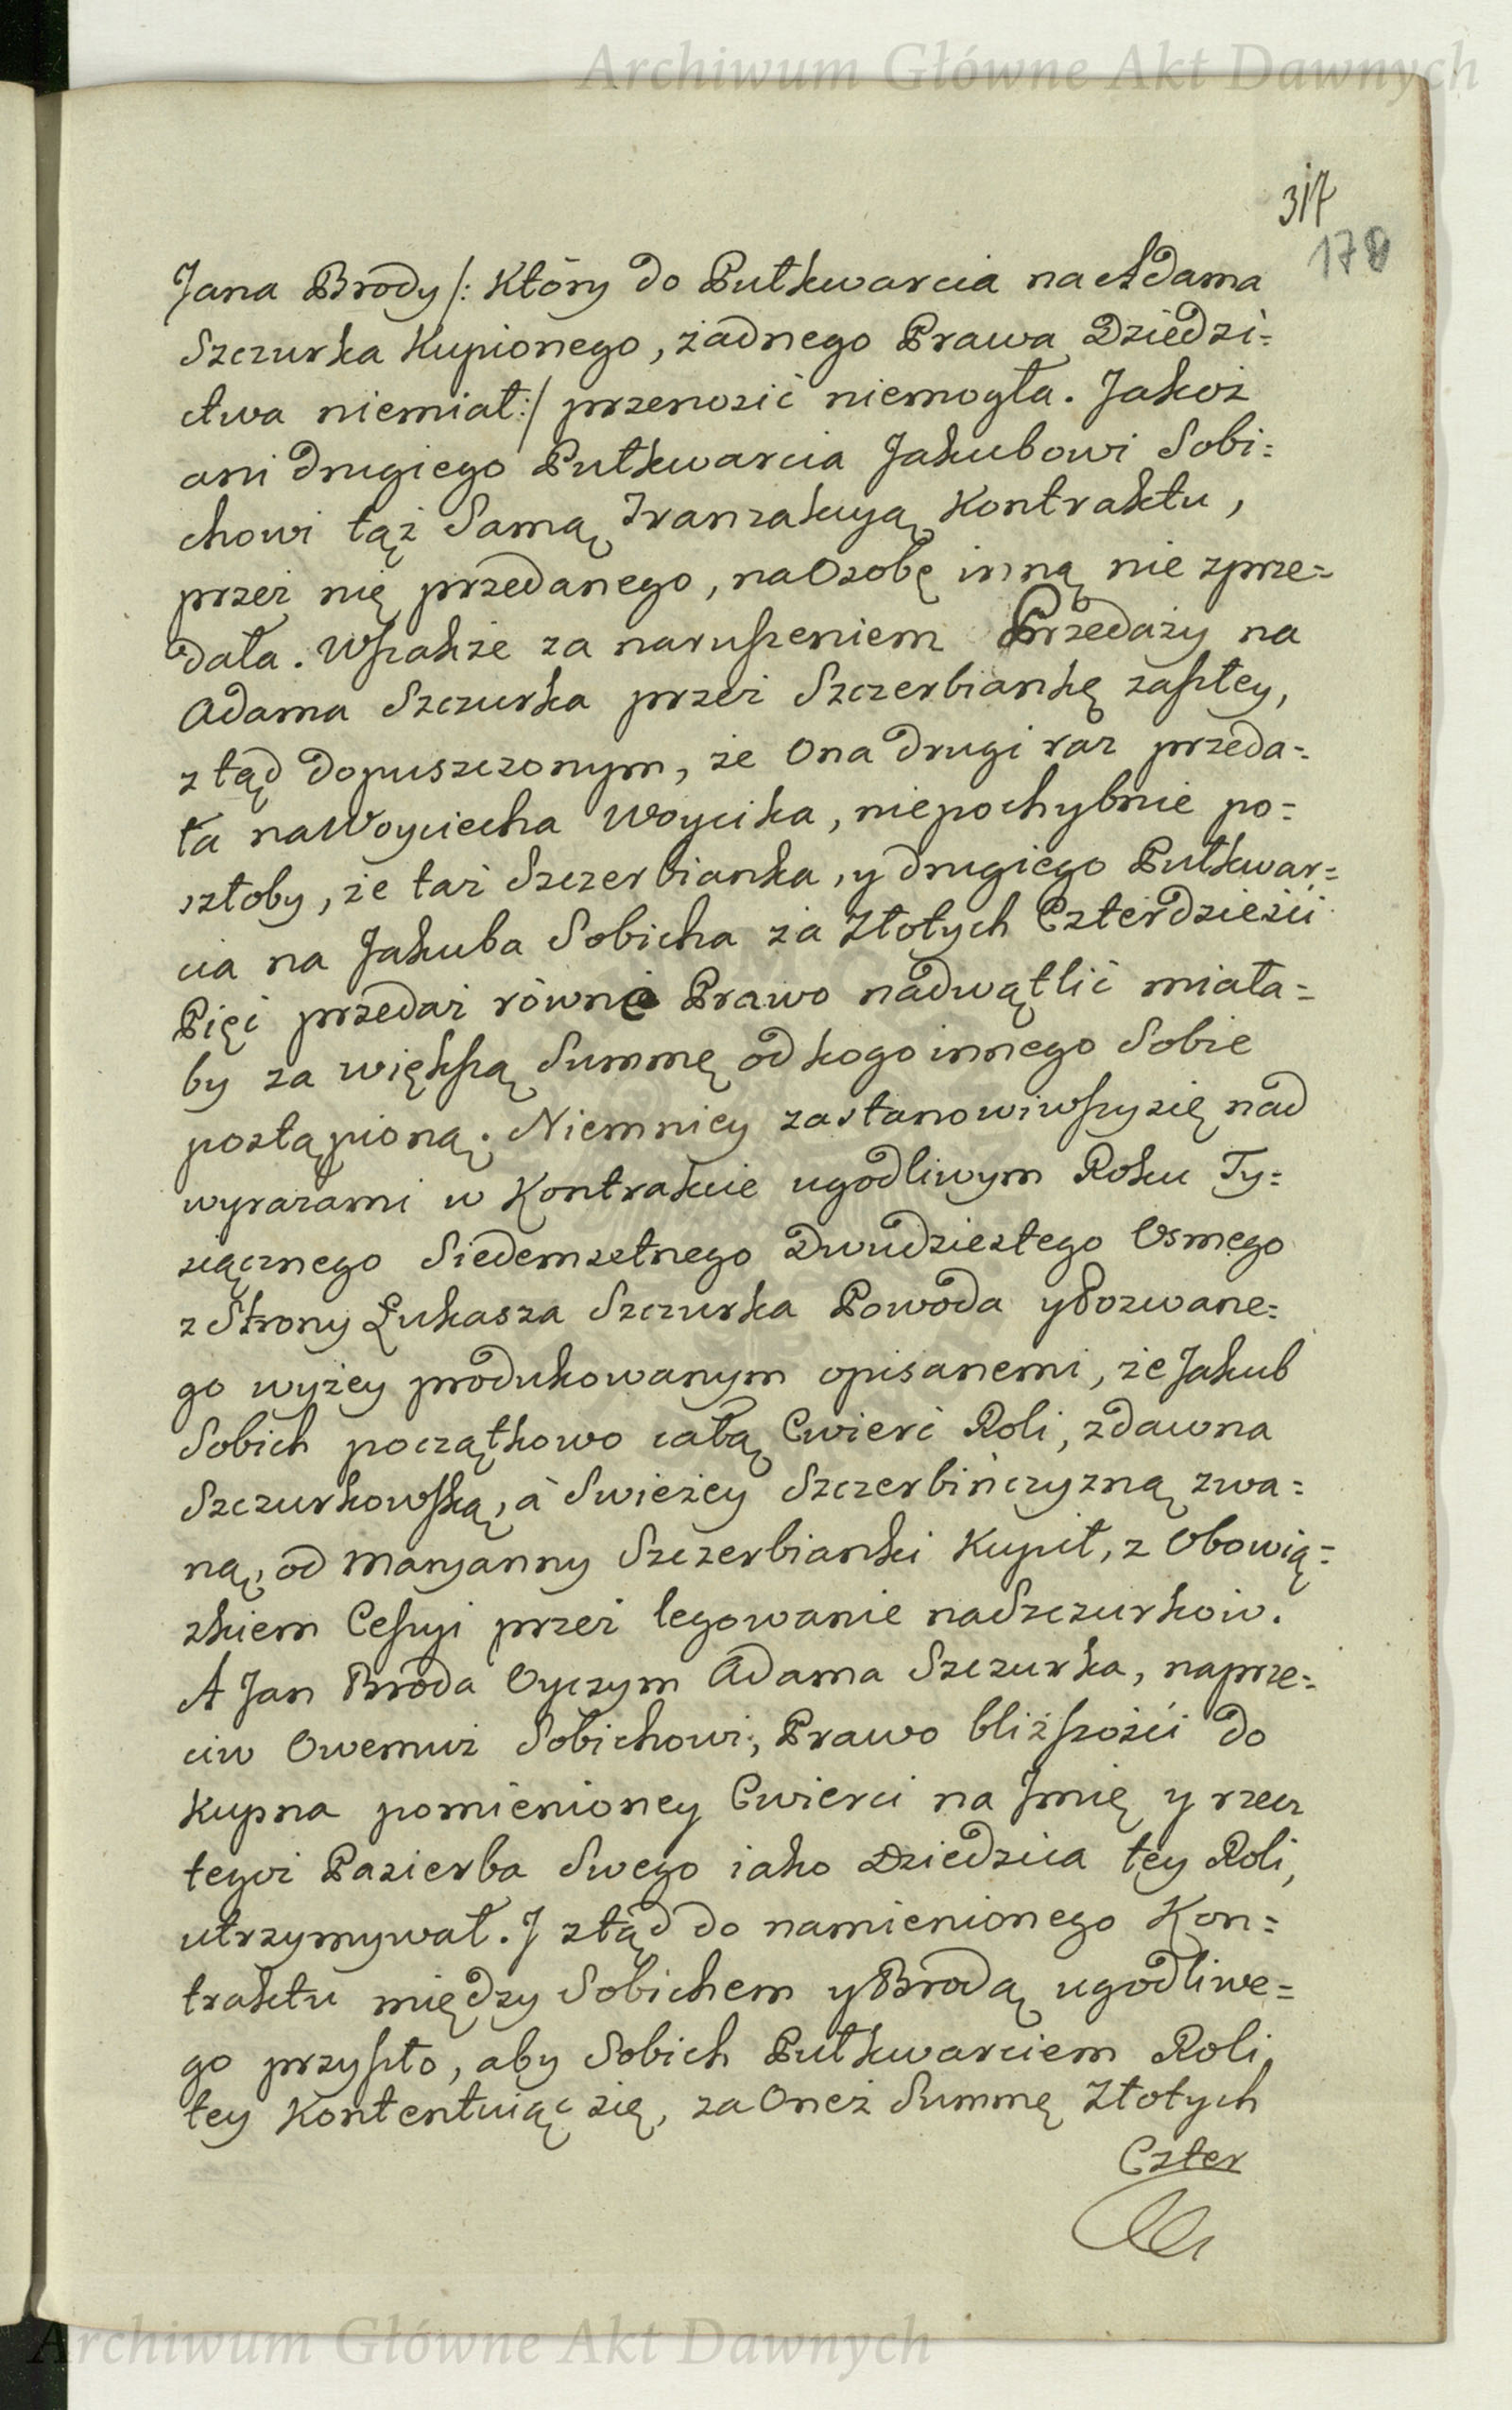 Archiwum Główne Akt Dawnych
317
178
Jana Brody /: Który do Pułkwarcia na Adama
Szczurka Kupionego, żadnego Prawa Dziedzi=
ctwa niemiał :/ przenosić niemogła. Jakoż
ani drugiego Pułkwarcia Jakubowi Sobi=
chowi tąż Samą Tranzakcyą Kontraktu,
przez nię przedanego, na Osobę inną nie zprze=
dała. Wszakże za naruszeniem Przedaży na
Adama Szczurka przez Szczerbiankę zaszłey,
ztąd dopuszczonym, że Ona drugi raz przeda=
ła na Woyciecha Woycika, niepochybnie po=
szłoby, że taż Szczerbianka, y drugiego Pułkwar=
cia na Jakuba Sobicha za Złotych Czterdzieści
Pięć przedaż równie Prawo nadwątlić miała=
by za większą Summę od kogo innego Sobie
postąpioną. Niemniey zastanowiwszy się nad
wyrazami w Kontrakcie ugodliwym Roku Ty=
siącznego Siedemsetnego Dwudziestego Osmego
z Strony Łukasza Szczurka Powoda y Pozwane=
go wyżey produkowanym opisanemi, że Jakub
Sobich początkowo całą Cwierć Roli, zdawna
Szczurkowską, à Swieżey Szczerbińczyzną zwa=
ną, od Maryanny Szczerbianki Kupił, z Obowią=
zkiem Cessyi przez legowanie na Szczurków.
A Jan Broda Oyczym Adama Szczurka, naprze=
ciw Owemuż Sobichowi, Prawo bliższości do
Kupna pomienioney Cwierci na Jmię y rzecz
tegoż Pasierba Swego iako Dziedzica tey Roli,
utrzymywał. J ztąd do namienionego Kon=
traktu między Sobichem y Brodą ugodliwe=
go przyszło, aby Sobich Pułkwarciem Roli
tey Kontentuiąc się, za Oneż Summę Złotych
Czter
Archiwum Główne Akt Dawnych